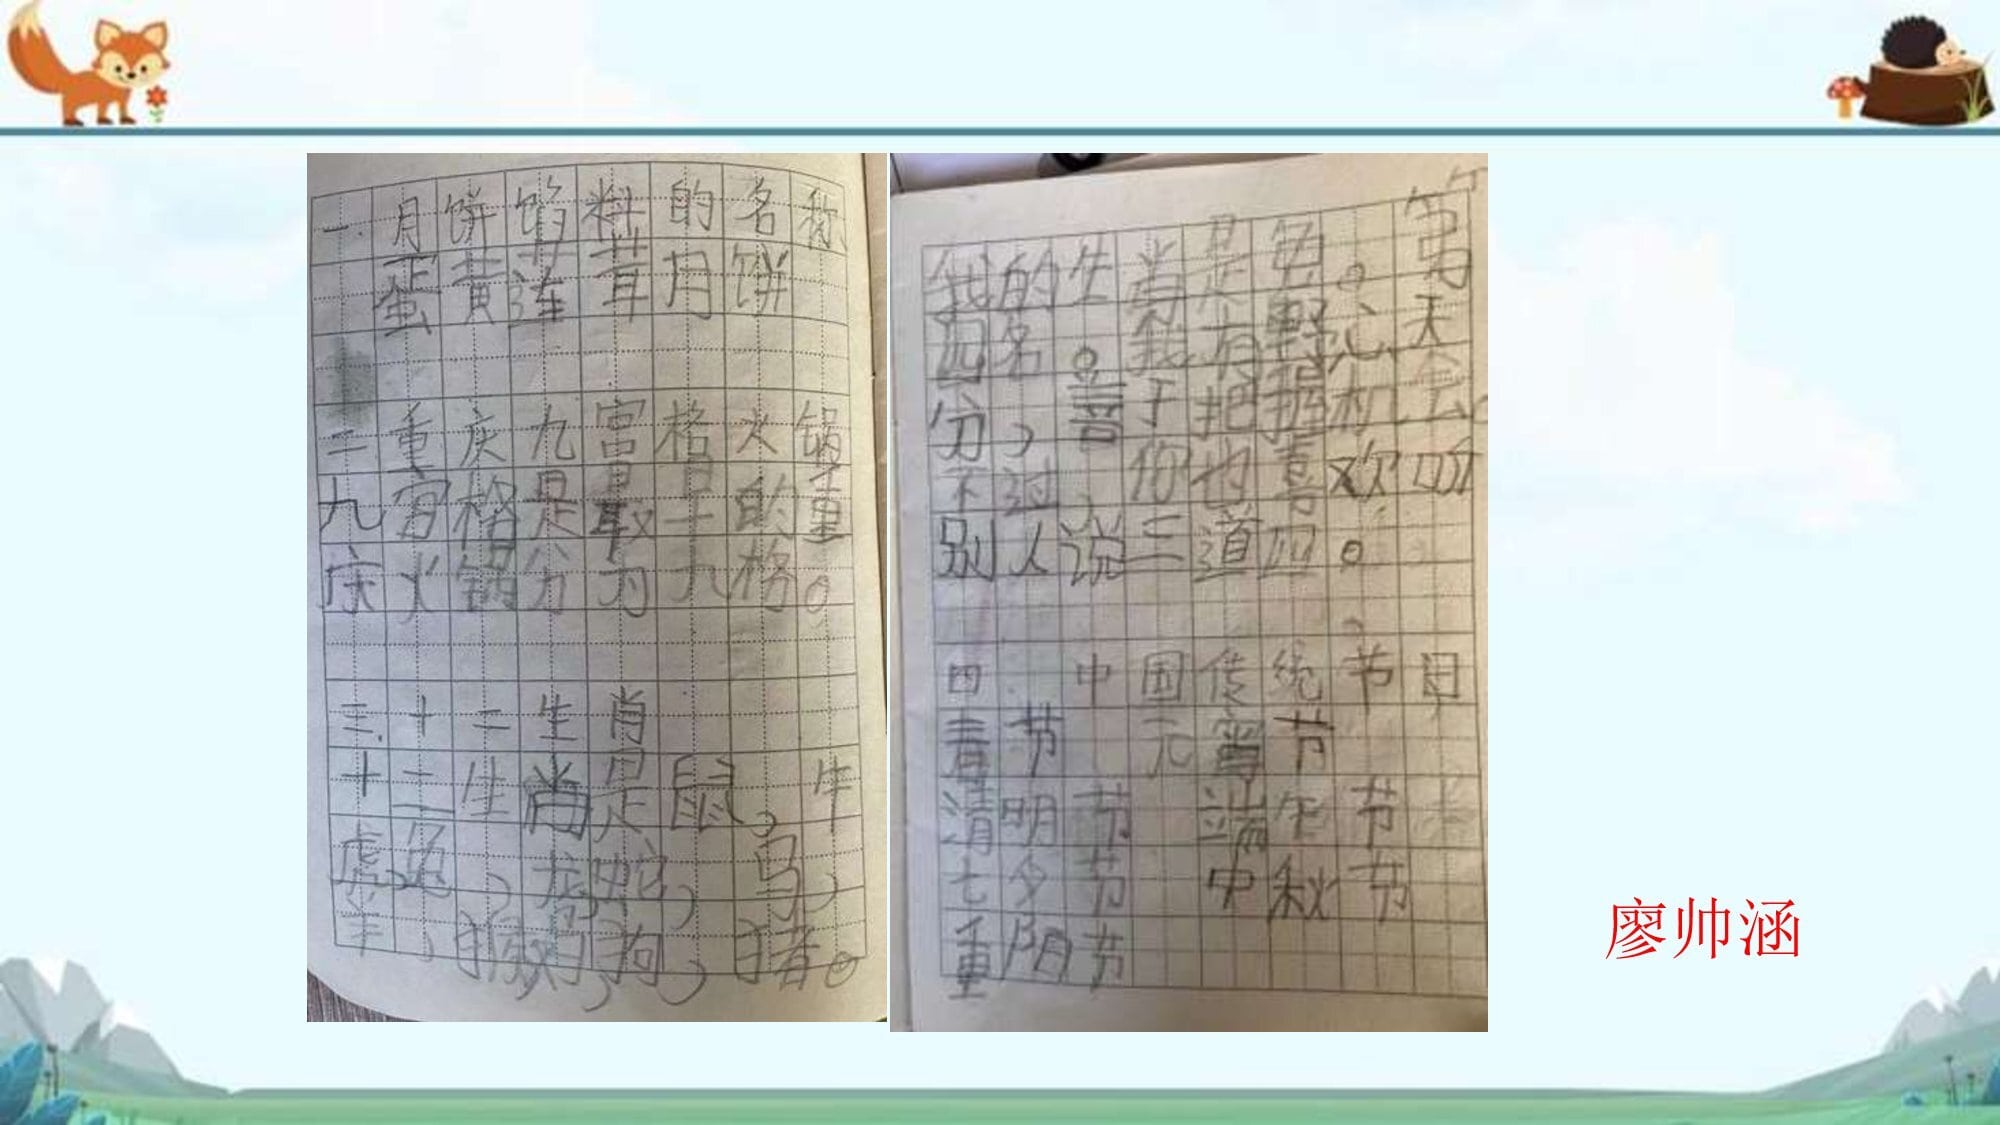 一.月饼馅料的名称
蛋黄莲茸月饼
二重庆九宫格火锅
九宫格是最早的重
庆火锅分为九格。
三.十二生肖
十二生肖是鼠，牛
虎，兔，龙，蛇，马，
羊，猴，鸡，狗，猪。
我的生肖是兔。第
四名。我有野心，天
分，善于把握机会
不过，你也喜欢听
别人说三道四。
四 中国传统节日
春节 元宵节
清明节 端午节
七夕节 中秋节
重阳节
廖帅涵